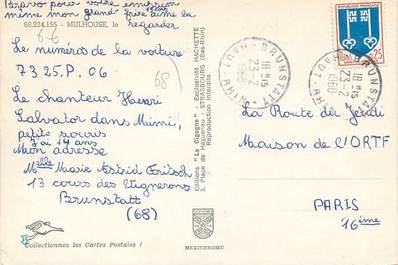 Bravo pour votre émission
même mon grand frère aime la
68.224.155 - MULHOUSE, le regarder
Le numéros de la voiture
7325.P.06
68
Le chanteur Henri
Salvator dans Minnie,
petite souris
J'ai 14 ans
Mon adresse
Melle Marie Astrid Fritsch
13 cours des Vignerons
Brunstatt
(68)
Collectionnez les Cartes Postales !
Editions "La Cigogne" - Exclusivité HACHETTE
3, Place de Haguenau - STRASBOURG (Bas-Rhin)
Reproduction Interdite
MEXICHROME
BRUNSTATT
HAUT-RHIN
18H15
23-2
1968
BRUNSTATT
HAUT-RHIN
18H15
23-2
1968
25
La Route du Jeudi
Maison de l'ORTF
PARIS
16ème